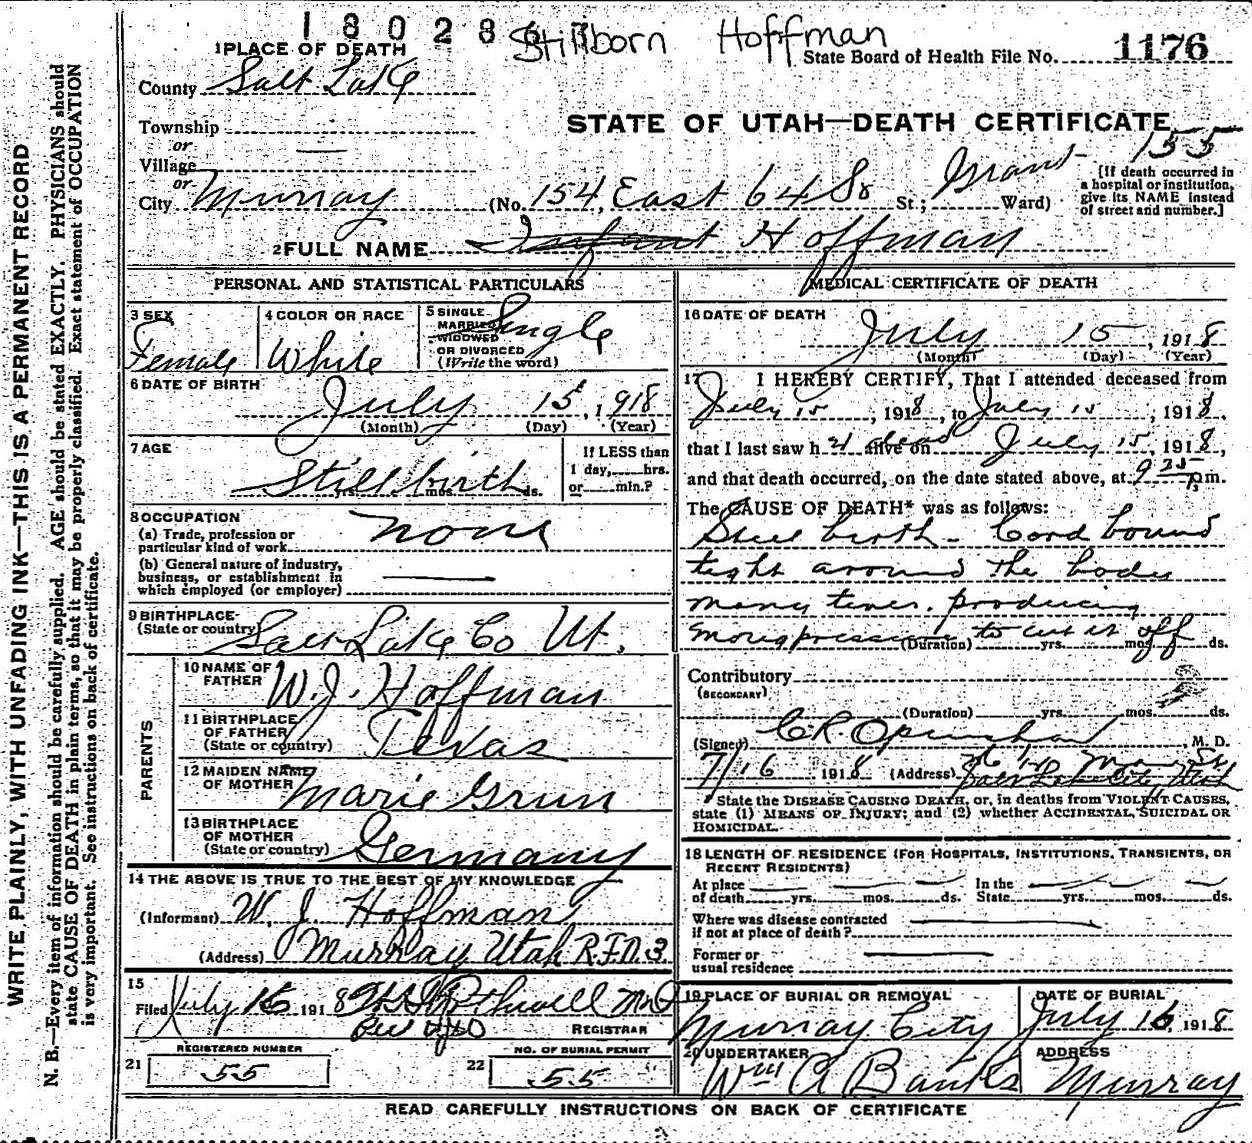 18028
Stillborn Hoffman
1 PLACE OF DEATH
State Board of Health File No. 1176
County Salt Lake
Township
or
STATE OF UTAH—DEATH CERTIFICATE
155
Village
or
City Murray (No. 154, East 64 So St; Grant Ward)
[If death occurred in a hospital or institution, give its NAME instead of street and number.]
2 FULL NAME Infant Hoffman
PERSONAL AND STATISTICAL PARTICULARS
3 SEX
Female
4 COLOR OR RACE
White
5 SINGLE
MARRIED
WIDOWED
OR DIVORCED
(Write the word)
Single
6 DATE OF BIRTH
July 15, 1918
(Month) (Day) (Year)
7 AGE
Still birth
yrs. mos. ds.
If LESS than
1 day, hrs.
or min.?
8 OCCUPATION
(a) Trade, profession or
particular kind of work
none
(b) General nature of industry,
business, or establishment in
which employed (or employer)
9 BIRTHPLACE
(State or country)
Salt Lake Co Ut.
PARENTS
10 NAME OF
FATHER
W. J. Hoffman
11 BIRTHPLACE
OF FATHER
(State or country)
Texas
12 MAIDEN NAME
OF MOTHER
Marie Grun
13 BIRTHPLACE
OF MOTHER
(State or country)
Germany
14 THE ABOVE IS TRUE TO THE BEST OF MY KNOWLEDGE
(Informant) W. J. Hoffman
(Address) Murray Utah R.F.D. 3.
15
Filed July 16 1918
REGISTRAR
REGISTERED NUMBER
21 55
NO. OF BURIAL PERMIT
22 55
MEDICAL CERTIFICATE OF DEATH
16 DATE OF DEATH
July 15, 1918
(Month) (Day) (Year)
17 I HEREBY CERTIFY, That I attended deceased from
July 15, 1918, to July 15, 1918,
that I last saw her dead alive on July 15, 1918,
and that death occurred, on the date stated above, at 9 35 p.m.
The CAUSE OF DEATH* was as follows:
Still birth - Cord bound
tight around the body
many times. producing
to cut it off
(Duration) yrs. mos. ds.
Contributory
(SECONDARY)
(Duration) yrs. mos. ds.
(Signed) C R Openshaw, M. D.
7/16 1918 (Address) Salt Lake City Utah
* State the DISEASE CAUSING DEATH, or, in deaths from VIOLENT CAUSES,
state (1) MEANS OF INJURY; and (2) whether ACCIDENTAL, SUICIDAL OR
HOMICIDAL.
18 LENGTH OF RESIDENCE (FOR HOSPITALS, INSTITUTIONS, TRANSIENTS, OR
RECENT RESIDENTS)
At place
of death yrs. mos. ds.
In the
State yrs. mos. ds.
Where was disease contracted
if not at place of death?
Former or
usual residence
19 PLACE OF BURIAL OR REMOVAL
Murray City
DATE OF BURIAL
July 16 1918
20 UNDERTAKER
Wm A Banks
ADDRESS
Murray
READ CAREFULLY INSTRUCTIONS ON BACK OF CERTIFICATE
WRITE PLAINLY, WITH UNFADING INK—THIS IS A PERMANENT RECORD
N. B.—Every item of information should be carefully supplied. AGE should be stated EXACTLY. PHYSICIANS should
state CAUSE OF DEATH in plain terms, so that it may be properly classified. Exact statement of OCCUPATION
is very important. See instructions on back of certificate.